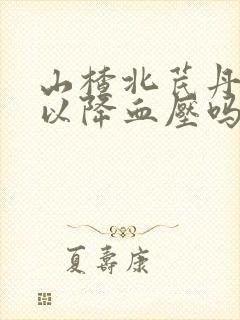 山楂北芪丹
以降血壓吗
夏壽康